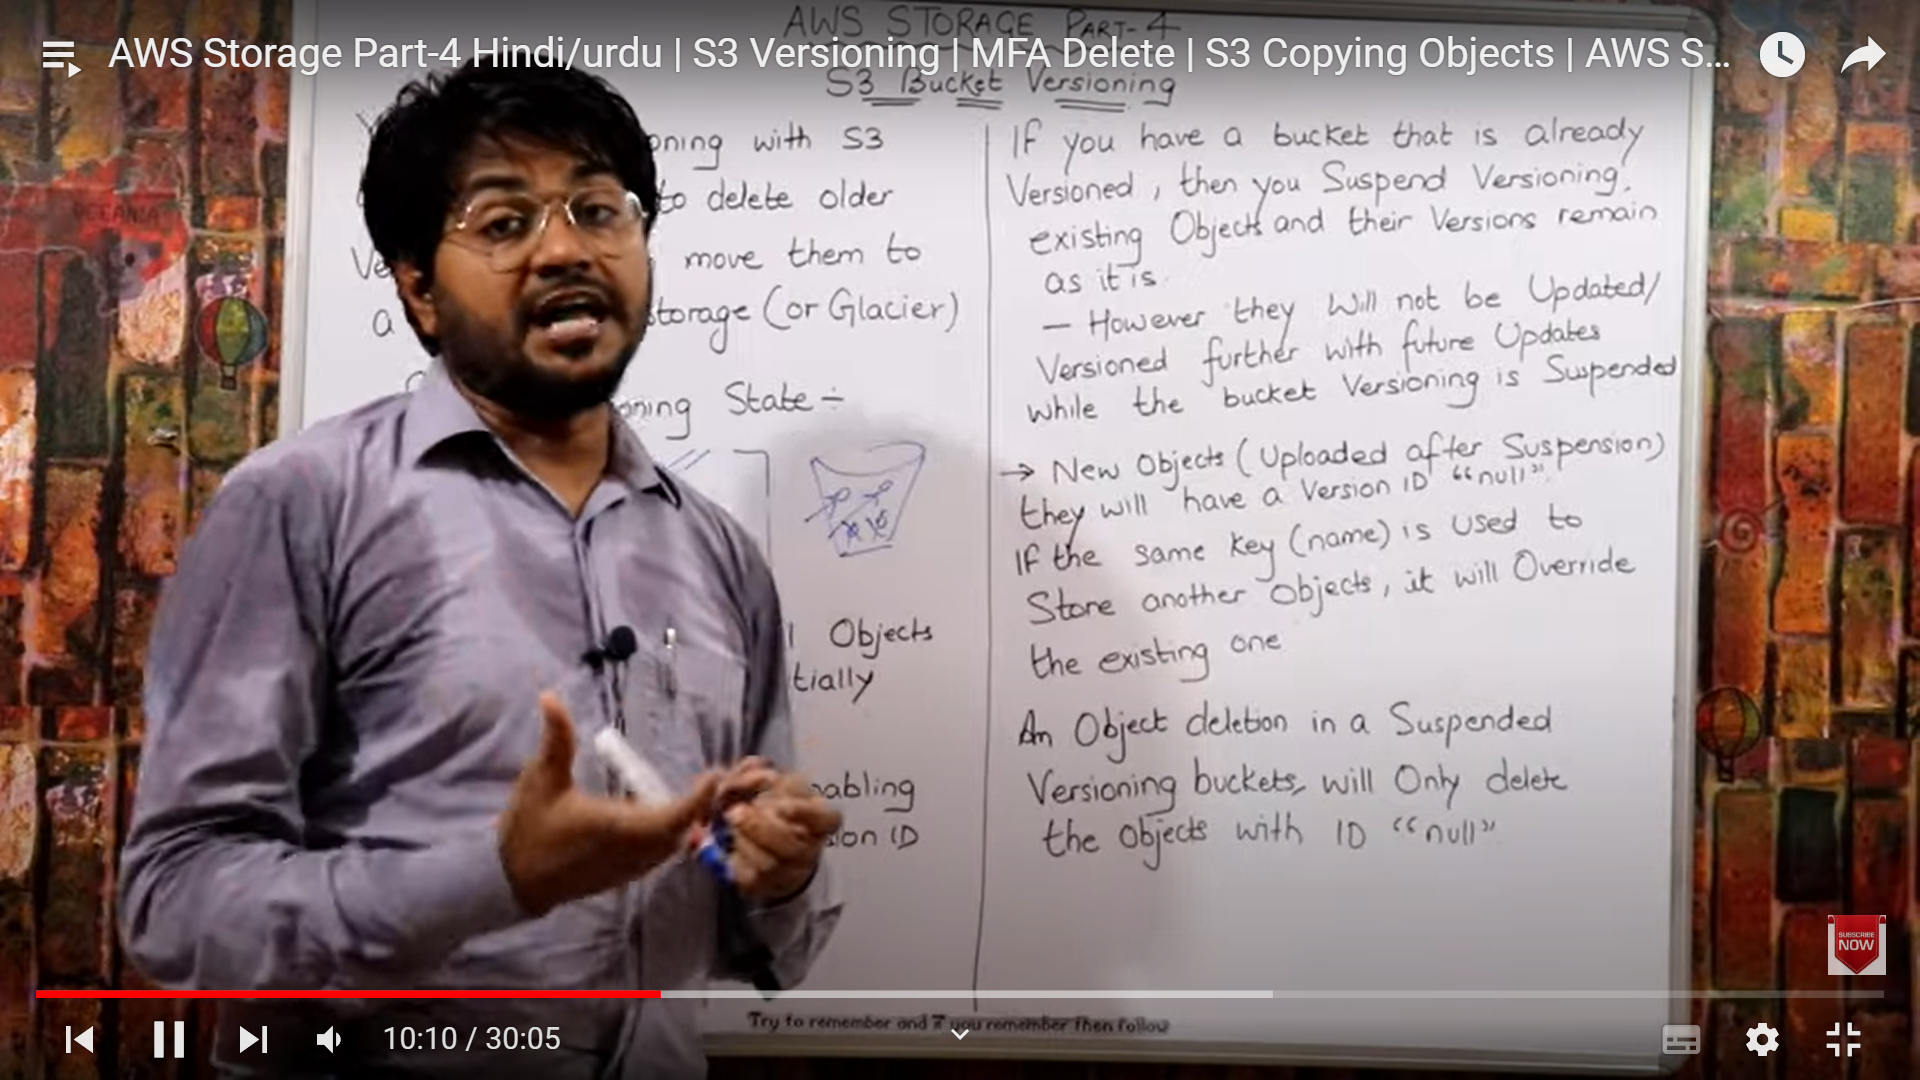 AWS STORAGE PART-4
AWS Storage Part-4 Hindi/urdu | S3 Versioning | MFA Delete | S3 Copying Objects | AWS S...
S3 Bucket Versioning
oning with S3
to delete older
Ve move them to
a storage (or Glacier)
oning State ÷
l Objects
tially
nabling
sion ID
If you have a bucket that is already
Versioned, then you Suspend Versioning,
existing Objects and their Versions remain
as it is.
— However they will not be Updated/
Versioned further with future Updates
while the bucket Versioning is Suspended
→ New Objects (Uploaded after Suspension)
they will have a Version ID "null".
If the same key (name) is used to
Store another Objects, it will Override
the existing one
An Object deletion in a Suspended
Versioning buckets, will Only delete
the Objects with ID "null".
OCEANIA
SUBSCRIBE
NOW
10:10 / 30:05
Try to remember and if you remember then follow